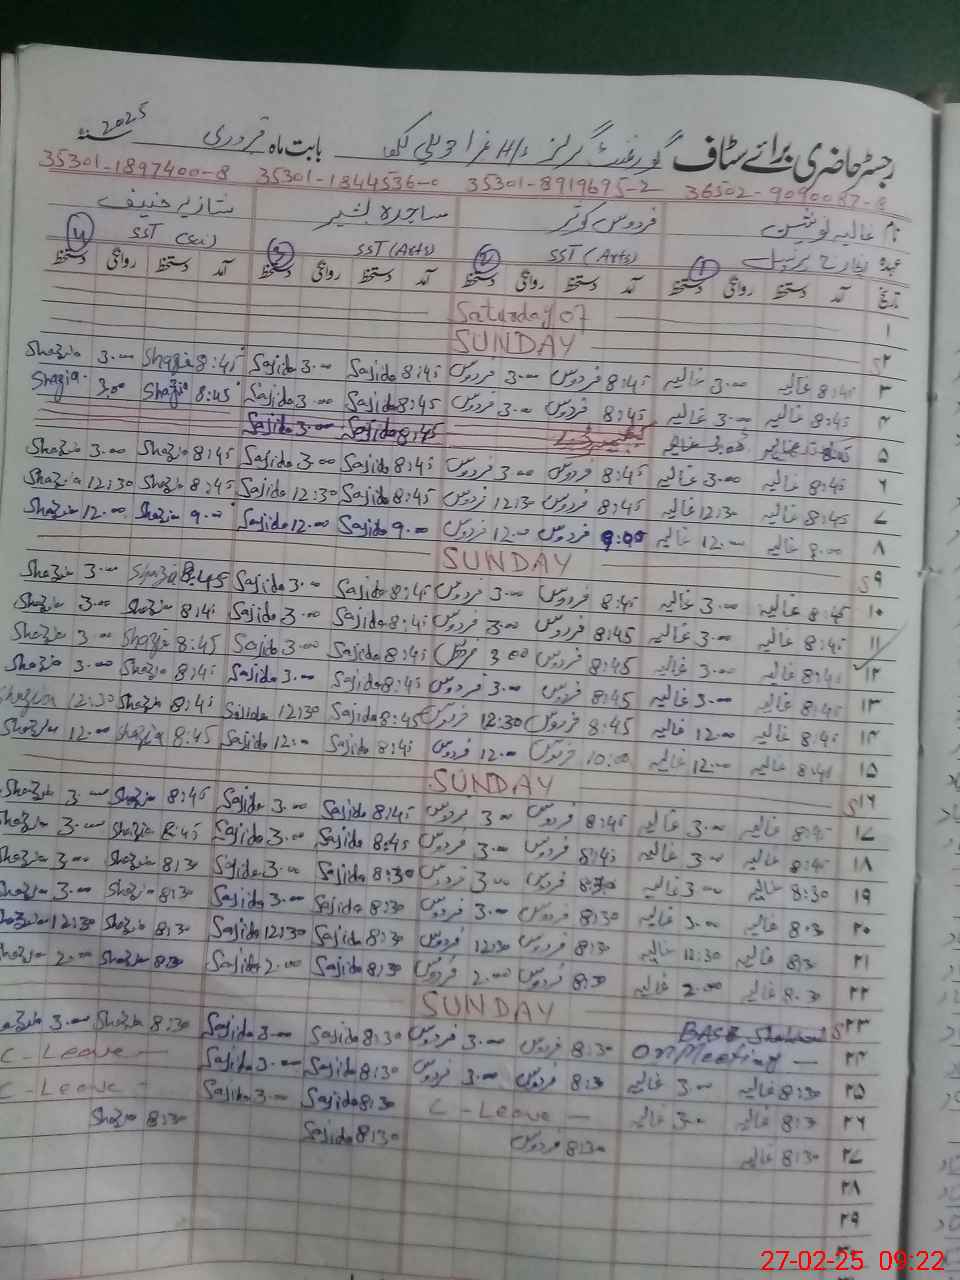 رجسٹر حاضری برائے سٹاف گورنمنٹ گرلز H/S بابت ماہ فروری سنہ 2025
36502-9090087-8 35301-8919695-2 35301-1844536-0 35301-1897400-8
نام فردوس کوثر ساجدہ بشیر شازیہ حنیف
عہدہ انچارج پرنسپل SST (Arts) SST (Arts) SST (Sci)
تاریخ آمد دستخط روانگی دستخط ۱ آمد دستخط روانگی دستخط ۲ آمد دستخط روانگی دستخط ۳ آمد دستخط روانگی دستخط ۴
۱ Saturday
۲ SUNDAY
۳ 8:45 عالیہ 3.00 عالیہ 8:45 فردوس 3.00 فردوس Sajida 8:45 Sajida 3.00 Shazia 8:45 Shazia 3.00
۴ 8:45 عالیہ 3.00 عالیہ 8:45 فردوس 3.00 فردوس Sajida 8:45 Sajida 3.00 Shazia 8:45 Shazia 3.00
۵ Sajida 8:45 Sajida 3.00
۶ 8:45 عالیہ 3.00 عالیہ 8:45 فردوس 3.00 فردوس Sajida 8:45 Sajida 3.00 Shazia 8:45 Shazia 3.00
۷ 8:45 عالیہ 12:30 عالیہ 8:45 فردوس 12:30 فردوس Sajida 8:45 Sajida 12:30 Shazia 8:45 Shazia 12:30
۸ 9.00 عالیہ 12.00 عالیہ فردوس 12.00 فردوس Sajida 9.00 Sajida 12.00 Shazia 9.00 Shazia 12.00
۹ SUNDAY
۱۰ 8:45 عالیہ 3.00 عالیہ 8:45 فردوس 3.00 فردوس Sajida 8:45 Sajida 3.00 Shazia 8:45 Shazia 3.00
۱۱ 8:45 عالیہ 3.00 عالیہ 8:45 فردوس 3.00 فردوس Sajida 8:45 Sajida 3.00 Shazia 8:45 Shazia 3.00
۱۲ 8:45 عالیہ 3.00 عالیہ 8:45 فردوس 3.00 فردوس Sajida 8:45 Sajida 3.00 Shazia 8:45 Shazia 3.00
۱۳ 8:45 عالیہ 3.00 عالیہ 8:45 فردوس 3.00 فردوس Sajida 8:45 Sajida 3.00 Shazia 8:45 Shazia 3.00
۱۴ 8:45 عالیہ 12.00 عالیہ 8:45 فردوس 12:30 فردوس Sajida 8:45 Sajida 12:30 Shazia 8:45 Shazia 12:30
۱۵ 8:45 عالیہ 12.00 عالیہ 10:00 فردوس 12.00 فردوس Sajida 8:45 Sajida 12:00 Shazia 8:45 Shazia 12.00
۱۶ SUNDAY
۱۷ 8:45 عالیہ 3.00 عالیہ 8:45 فردوس 3.00 فردوس Sajida 8:45 Sajida 3.00 Shazia 8:45 Shazia 3.00
۱۸ 8:45 عالیہ 3.00 عالیہ 8:45 فردوس 3.00 فردوس Sajida 8:45 Sajida 3.00 Shazia 8:45 Shazia 3.00
۱۹ 8:30 عالیہ 3.00 عالیہ 8:30 فردوس 3.00 فردوس Sajida 8:30 Sajida 3.00 Shazia 8:30 Shazia 3.00
۲۰ 8:30 عالیہ 3.00 عالیہ 8:30 فردوس 3.00 فردوس Sajida 8:30 Sajida 3.00 Shazia 8:30 Shazia 3.00
۲۱ 8:30 عالیہ 12:30 عالیہ 8:30 فردوس 12:30 فردوس Sajida 8:30 Sajida 12:30 Shazia 8:30 Shazia 12:30
۲۲ 8:30 عالیہ 2.00 عالیہ 8:30 فردوس 2.00 فردوس Sajida 8:30 Sajida 2.00 Shazia 8:30 Shazia 2.00
۲۳ SUNDAY
۲۴ On Meeting 8:30 فردوس 3.00 فردوس Sajida 8:30 Sajida 3.00 Shazia 8:30 Shazia 3.00
۲۵ 8:30 عالیہ 3.00 عالیہ 8:30 فردوس 3.00 فردوس Sajida 8:30 Sajida 3.00 C-Leave
۲۶ 8:30 عالیہ 3.00 عالیہ C-Leave Sajida 8:30 Sajida 3.00 C-Leave
۲۷ 8:30 عالیہ 8:30 فردوس Sajida 8:30 Shazia 8:30
۲۸
۲۹
۳۰
27-02-25 09:22